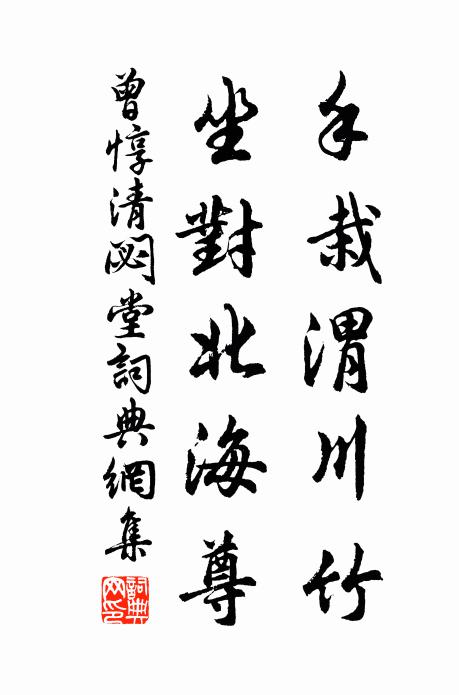 手栽渭川竹
坐對北海尊
曾惇清閟堂詞典網集
詞典網印